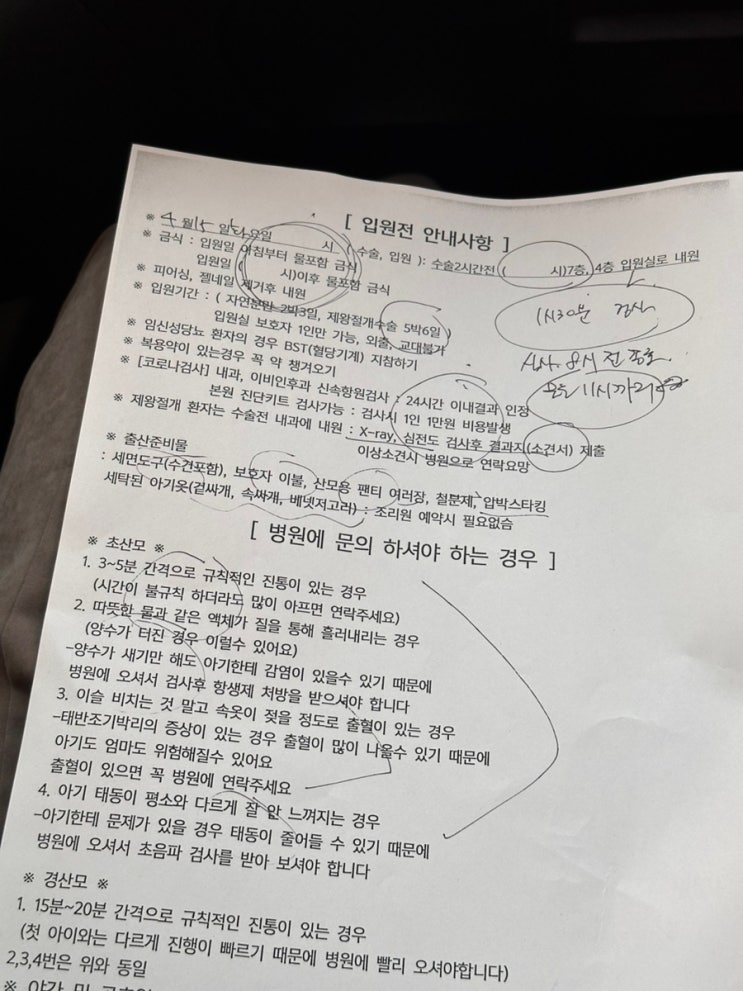 [ 입원전 안내사항 ]
※ 4월 15일 화요일 시 (수술, 입원) : 수술2시간전 ( 시)7층, 4층 입원실로 내원
※ 금식 : 입원일 아침부터 물포함 금식
입원일 ( 시)이후 물포함 금식
※ 피어싱, 젤네일 제거후 내원
※ 입원기간 : ( 자연분만 2박3일, 제왕절개수술 5박6일 )
입원실 보호자 1인만 가능, 외출, 교대불가
1시30분 검사
식사 8시 전
11시까지
※ 임신성당뇨 환자의 경우 BST(혈당기계) 지참하기
※ 복용약이 있는경우 꼭 약 챙겨오기
※ [코로나검사] 내과, 이비인후과 신속항원검사 : 24시간 이내결과 인정
본원 진단키트 검사가능 : 검사시 1인 1만원 비용발생
※ 제왕절개 환자는 수술전 내과에 내원 : X-ray, 심전도 검사후 결과지(소견서) 제출
이상소견시 병원으로 연락요망
※ 출산준비물
: 세면도구(수건포함), 보호자 이불, 산모용 팬티 여러장, 철분제, 압박스타킹
세탁된 아기옷(겉싸개, 속싸개, 베넷저고리) : 조리원 예약시 필요없슴
[ 병원에 문의 하셔야 하는 경우 ]
※ 초산모 ※
1. 3~5분 간격으로 규칙적인 진통이 있는 경우
(시간이 불규칙 하더라도 많이 아프면 연락주세요)
2. 따뜻한 물과 같은 액체가 질을 통해 흘러내리는 경우
(양수가 터진 경우 이럴수 있어요)
-양수가 새기만 해도 아기한테 감염이 있을수 있기 때문에
병원에 오셔서 검사후 항생제 처방을 받으셔야 합니다
3. 이슬 비치는 것 말고 속옷이 젖을 정도로 출혈이 있는 경우
-태반조기박리의 증상이 있는 경우 출혈이 많이 나올수 있기 때문에
아기도 엄마도 위험해질수 있어요
출혈이 있으면 꼭 병원에 연락주세요
4. 아기 태동이 평소와 다르게 잘 안 느껴지는 경우
-아기한테 문제가 있을 경우 태동이 줄어들 수 있기 때문에
병원에 오셔서 초음파 검사를 받아 보셔야 합니다
※ 경산모 ※
1. 15분~20분 간격으로 규칙적인 진통이 있는 경우
(첫 아이와는 다르게 진행이 빠르기 때문에 병원에 빨리 오셔야합니다)
2,3,4번은 위와 동일
※ 야간 및